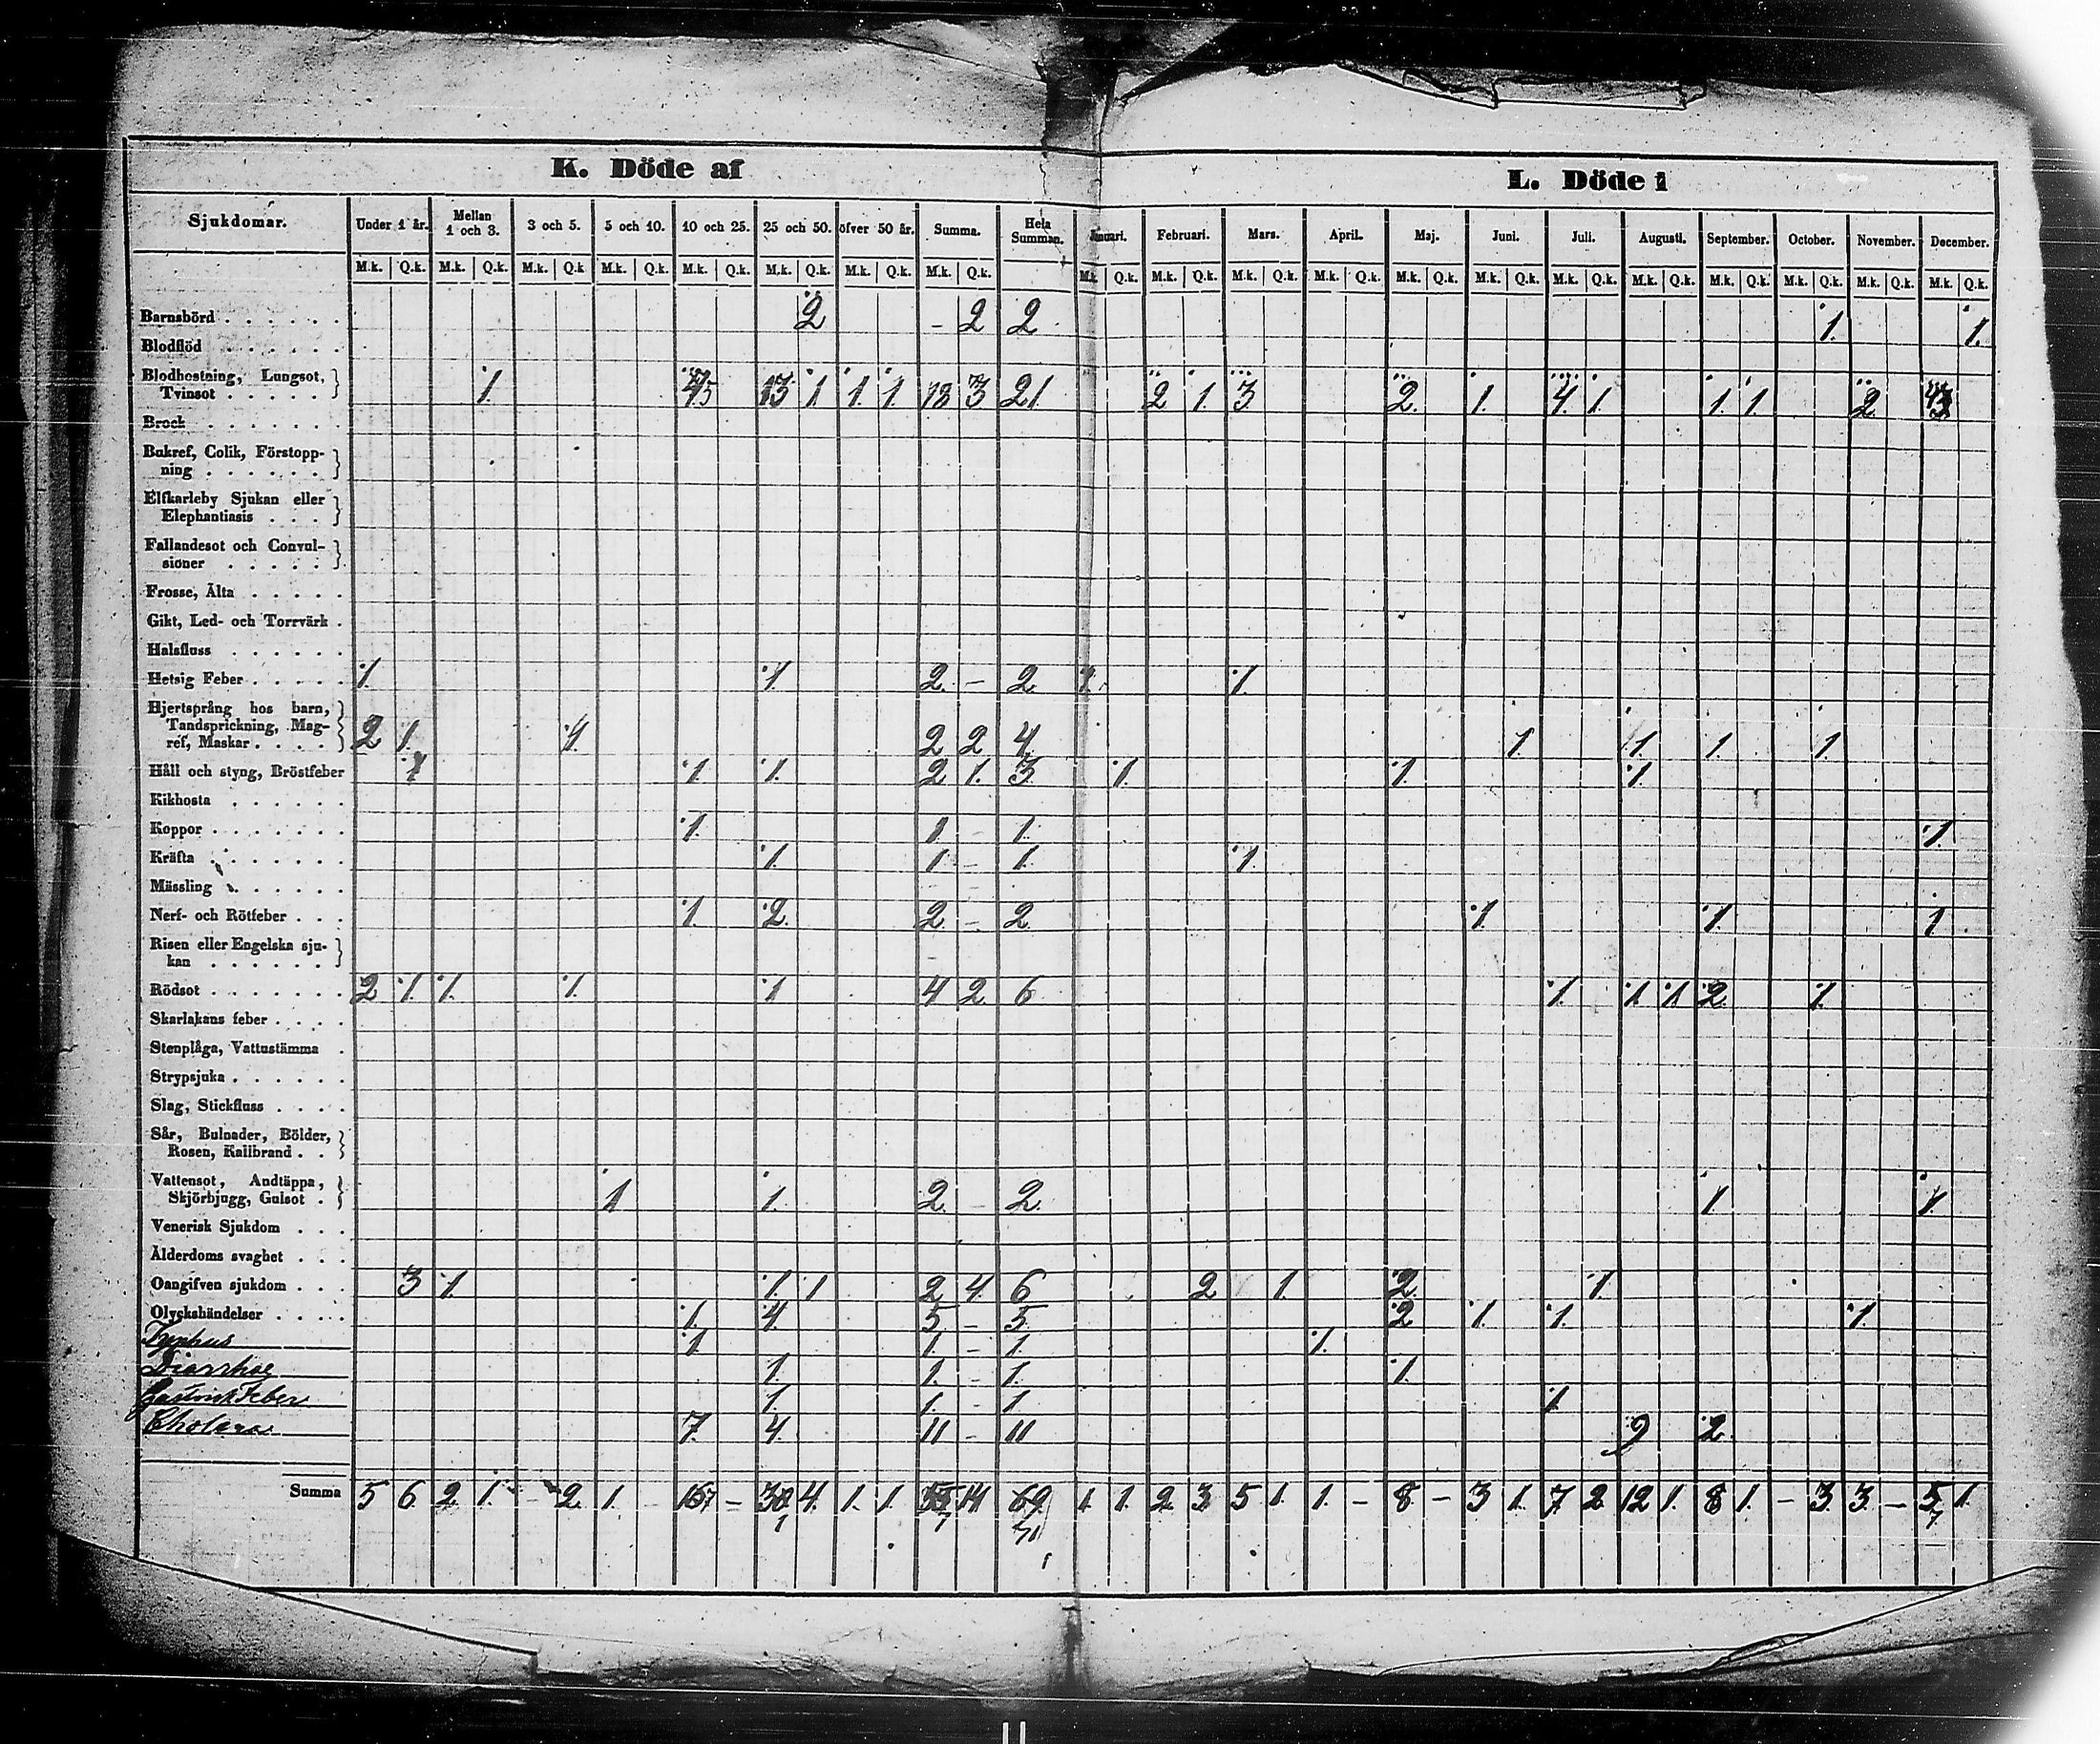 K. Döde af
L. Döde i
Sjukdomar. Under 1 år. Mellan 1 och 3. 3 och 5. 5 och 10. 10 och 25. 25 och 50. öfver 50 år. Summa. Hela Summan. Januari. Februari. Mars. April. Maj. Juni. Juli. Augusti. September. October. November. December.
M.k. Q.k. M.k. Q.k. M.k. Q.k. M.k. Q.k. M.k. Q.k. M.k. Q.k. M.k. Q.k. M.k. Q.k. M.k. Q.k. M.k. Q.k. M.k. Q.k. M.k. Q.k. M.k. Q.k. M.k. Q.k. M.k. Q.k. M.k. Q.k. M.k. Q.k. M.k. Q.k. M.k. Q.k. M.k. Q.k.
Barnsbörd . . . . . . 2 - 2 2 1. 1.
Blodflöd . . . . . .
Blodhostning, Lungsot,
Tvinsot . . . . . 1. 13 1 1. 1. 18 3 21. 2 1. 3. 2. 1. 4. 1. 1. 1. 2.
Brock . . . . . . .
Bukref, Colik, Förstopp-
ning . . . . . .
Elfkarleby Sjukan eller
Elephantiasis . . .
Fallandesot och Convul-
sioner . . . . .
Frosse, Älta . . . . .
Gikt, Led- och Torrvärk .
Halsfluss . . . . . .
Hetsig Feber . . . . . 1. 1. 2. - 2. 1. 1.
Hjertsprång hos barn,
Tandsprickning, Mag-
ref, Maskar . . . . 2 1. 1. 2 2 4. 1. 1. 1. 1.
Håll och styng, Bröstfeber 1 1. 1. 2 1. 3. 1. 1. 1.
Kikhosta . . . . . .
Koppor . . . . . . . 1. 1 1. 1.
Kräfta . . . . . . . 1. 1 - 1. 1.
Mässling . . . . . .
Nerf- och Rötfeber . . . 1. 2. 2. - 2. 1. 1. 1.
Risen eller Engelska sju-
kan . . . . . .
Rödsot . . . . . . . 2 1. 1. 1. 1 4 2 6 1. 1. 1. 2. 1.
Skarlakans feber . . . .
Stenplåga, Vattustämma .
Strypsjuka . . . . . .
Slag, Stickfluss . . . .
Sår, Bulnader, Bölder,
Rosen, Kallbrand . .
Vattensot, Andtäppa,
Skjörbjugg, Gulsot . 1 1. 2. - 2. 1. 1.
Venerisk Sjukdom . . .
Ålderdoms svaghet . . .
Oangifven sjukdom . . . 3 1. 1. 1 2 4. 6 2 1. 2. 1.
Olyckshändelser . . . . 1. 4. 5 - 5. 2 1. 1. 1.
Typhus 1. 1. - 1. 1.
Diarrhoe 1. 1. - 1. 1.
Gastrisk Feber 1. 1. - 1 1.
Cholera 7. 4. 11 - 11 9 2.
Summa 5 6 2 1. - 2 1. - - 4. 1. 1. 14 69 1. 1. 2 3 5 1. 1. - 8. - 3 1. 7 2 12 1. 8 1. - 3 3. - 5 1.
7 71 7